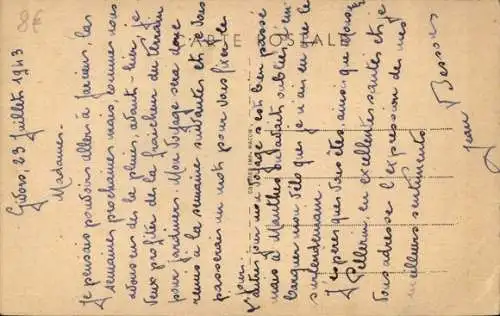 8€
CARTE POSTALE
Givors, 23 Juillet 1943
Madame.
Je pensais pouvoir aller à les
semaine prochaine mais, comme nous
avons eu de la pluie, avant-hier, je
veux profiter de la fraîcheur du terrain
pour jardiner. Mon voyage sera donc
remis à la semaine suivante et je vous
passerai un mot pour vous fixer le
jour.
L'autre jour mon voyage s'est bien passé
mais à Nanthes on avait oublié d'em-
barquer mon vélo que je n'ai eu que le
surlendemain.
J'espère que vous êtes, ainsi que
Pellerin, en excellente santé et je
vous adresse l'expression de mes
meilleurs sentiments.
Jean Besson